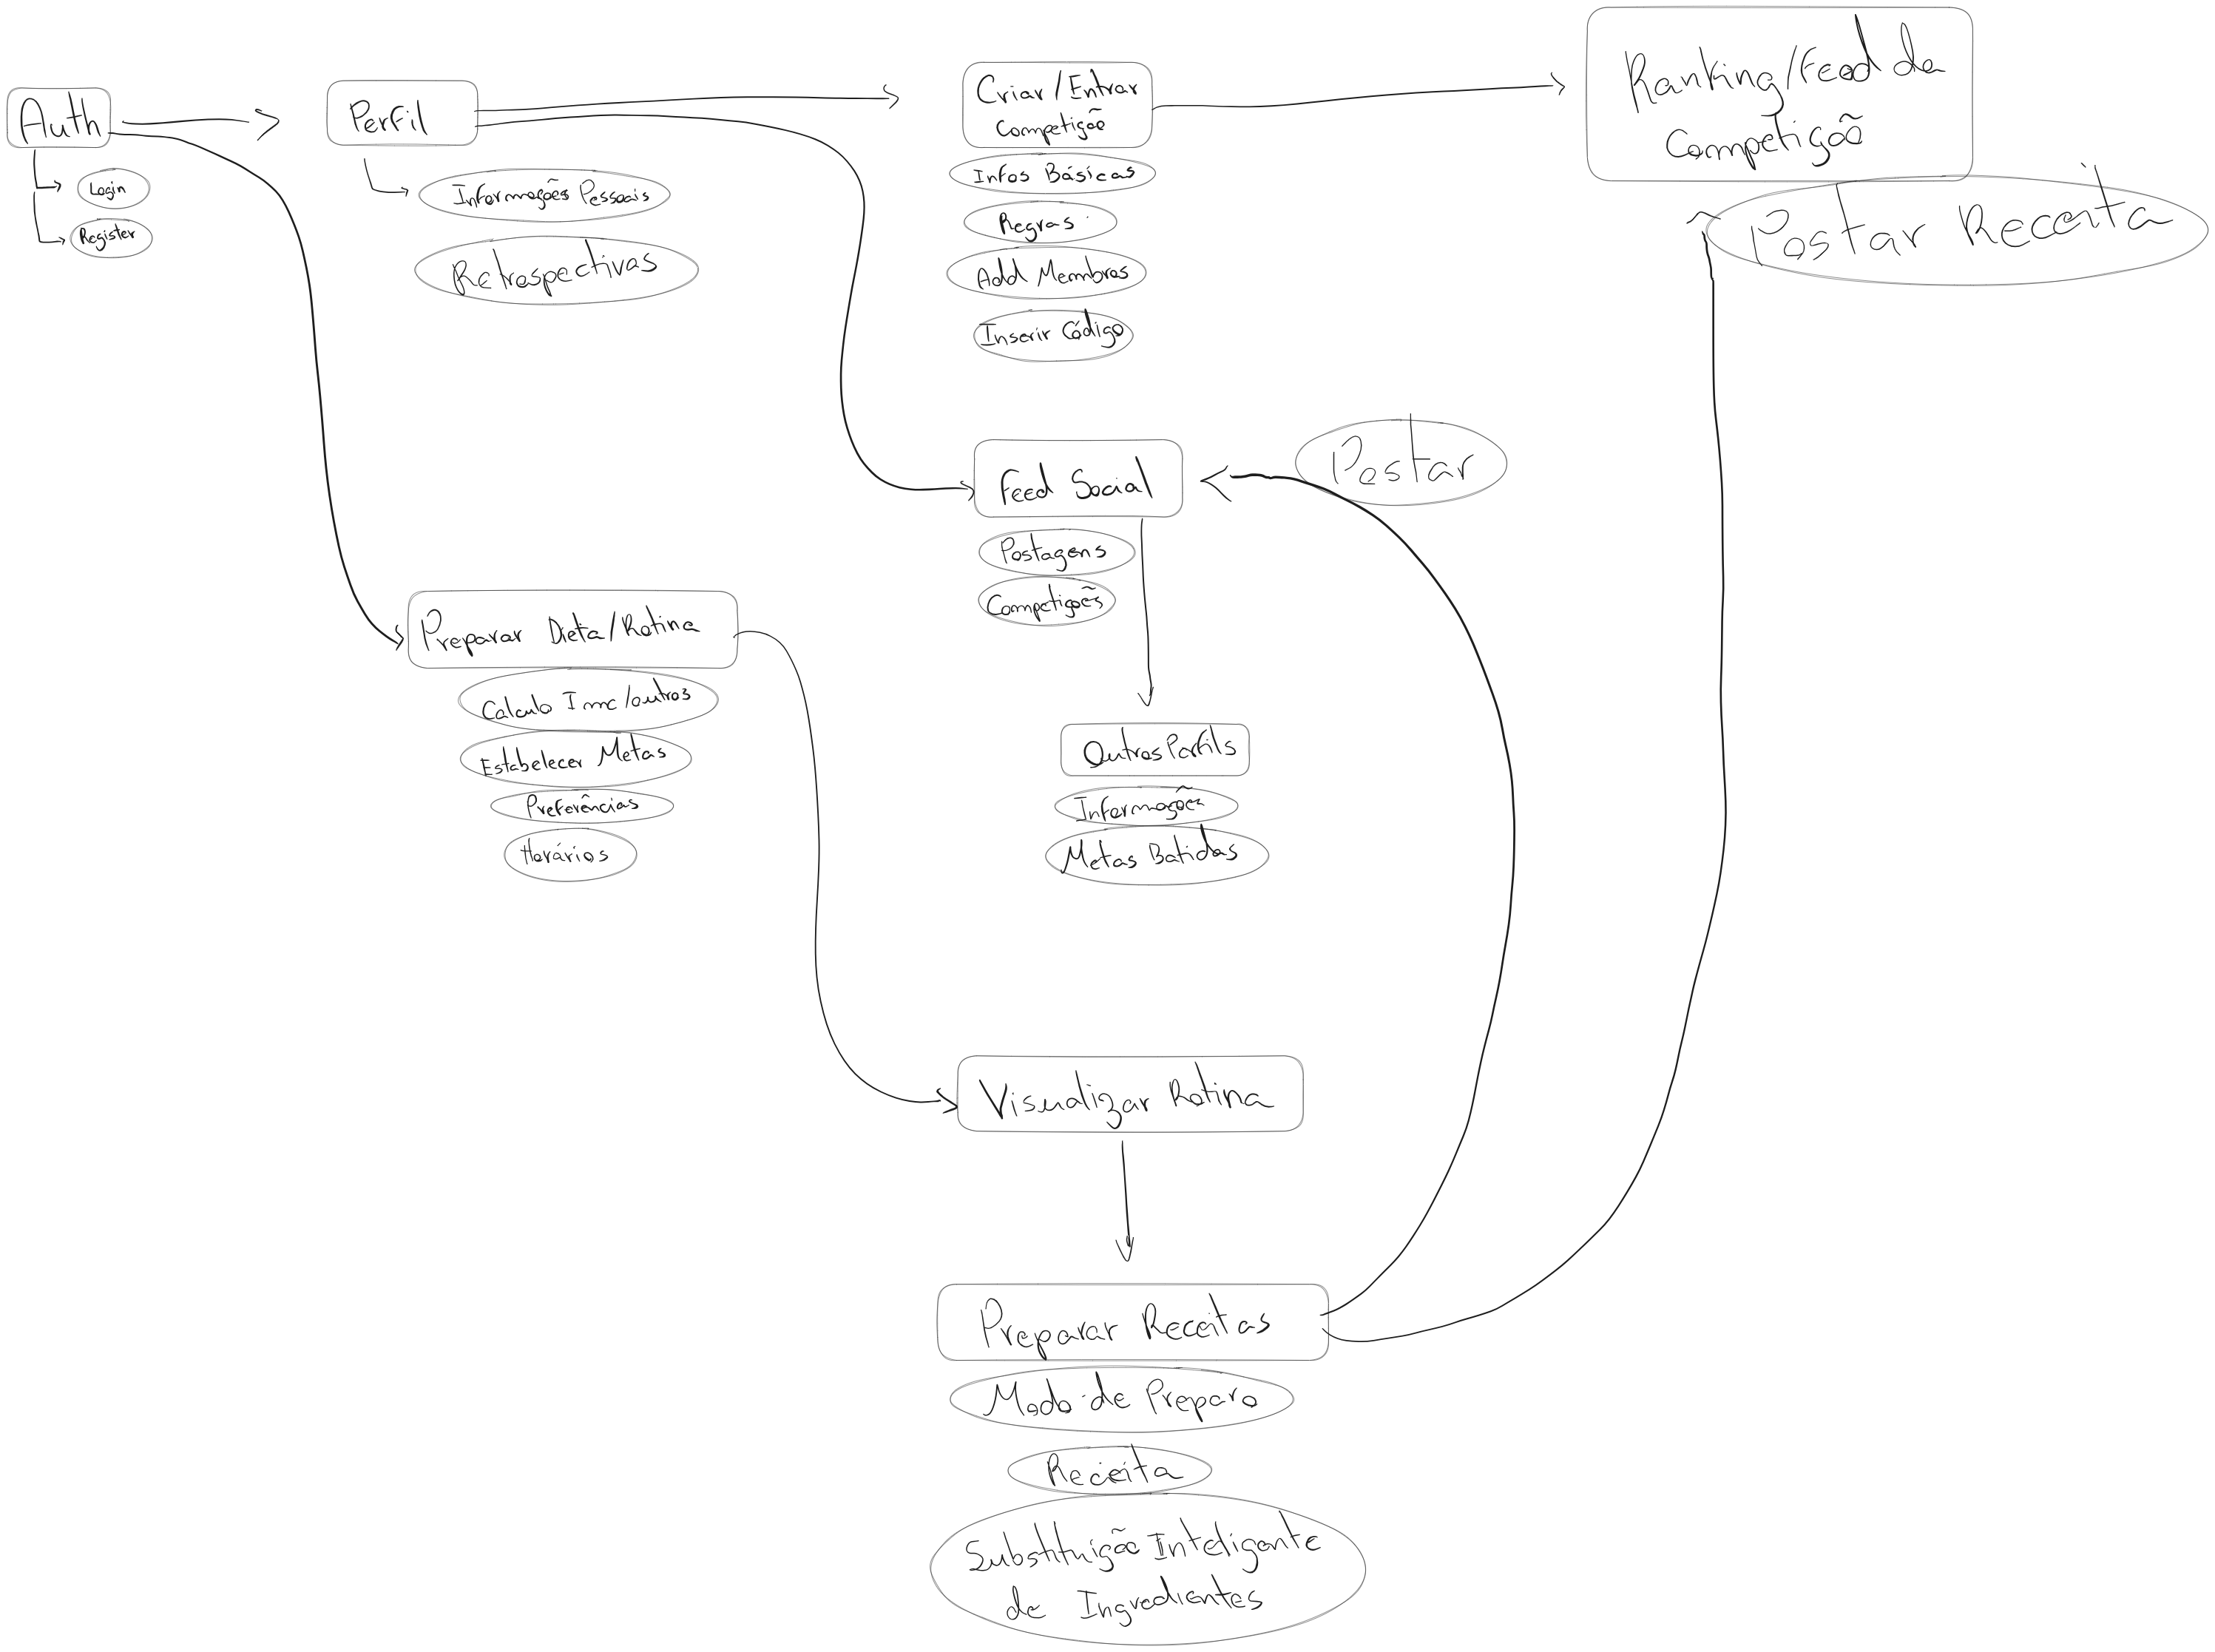 Auth
Login
Register
Perfil
Informações Pessoais
Retrospectivas
Criar/Entrar
Competição
Infos Básicas
Regras
Add Membros
Inserir Código
Ranking/Feed da
Competição
Postar Receita
Feed Social
Postagens
Competições
Postar
Outros Perfils
Informações
Metas Batidas
Preparar Dieta/Rotina
Calculo Imc/outros
Estabelecer Metas
Preferências
Horários
Visualizar Rotina
Preparar Receitas
Modo de Preparo
Receita
Substituição Inteligente
de Ingredientes